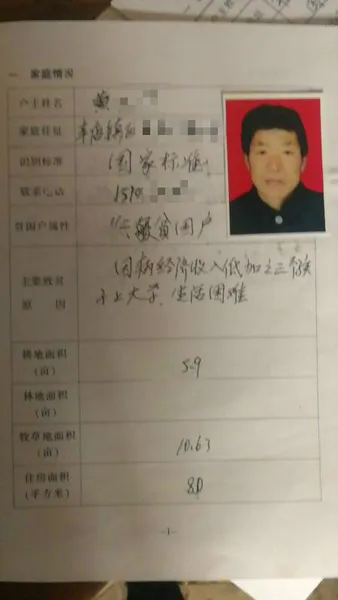 一 家庭情况
户主姓名 黄
家庭住址
识别标准 国家标准
联系电话 1519
贫困户属性 一般贫困户
主要致贫 因病经济收入低加之三个孩
原因 子上大学、生活困难
耕地面积 5.9
(亩)
林地面积
(亩)
牧草地面积 10.63
(亩)
住房面积 80
(平方米)
-1-